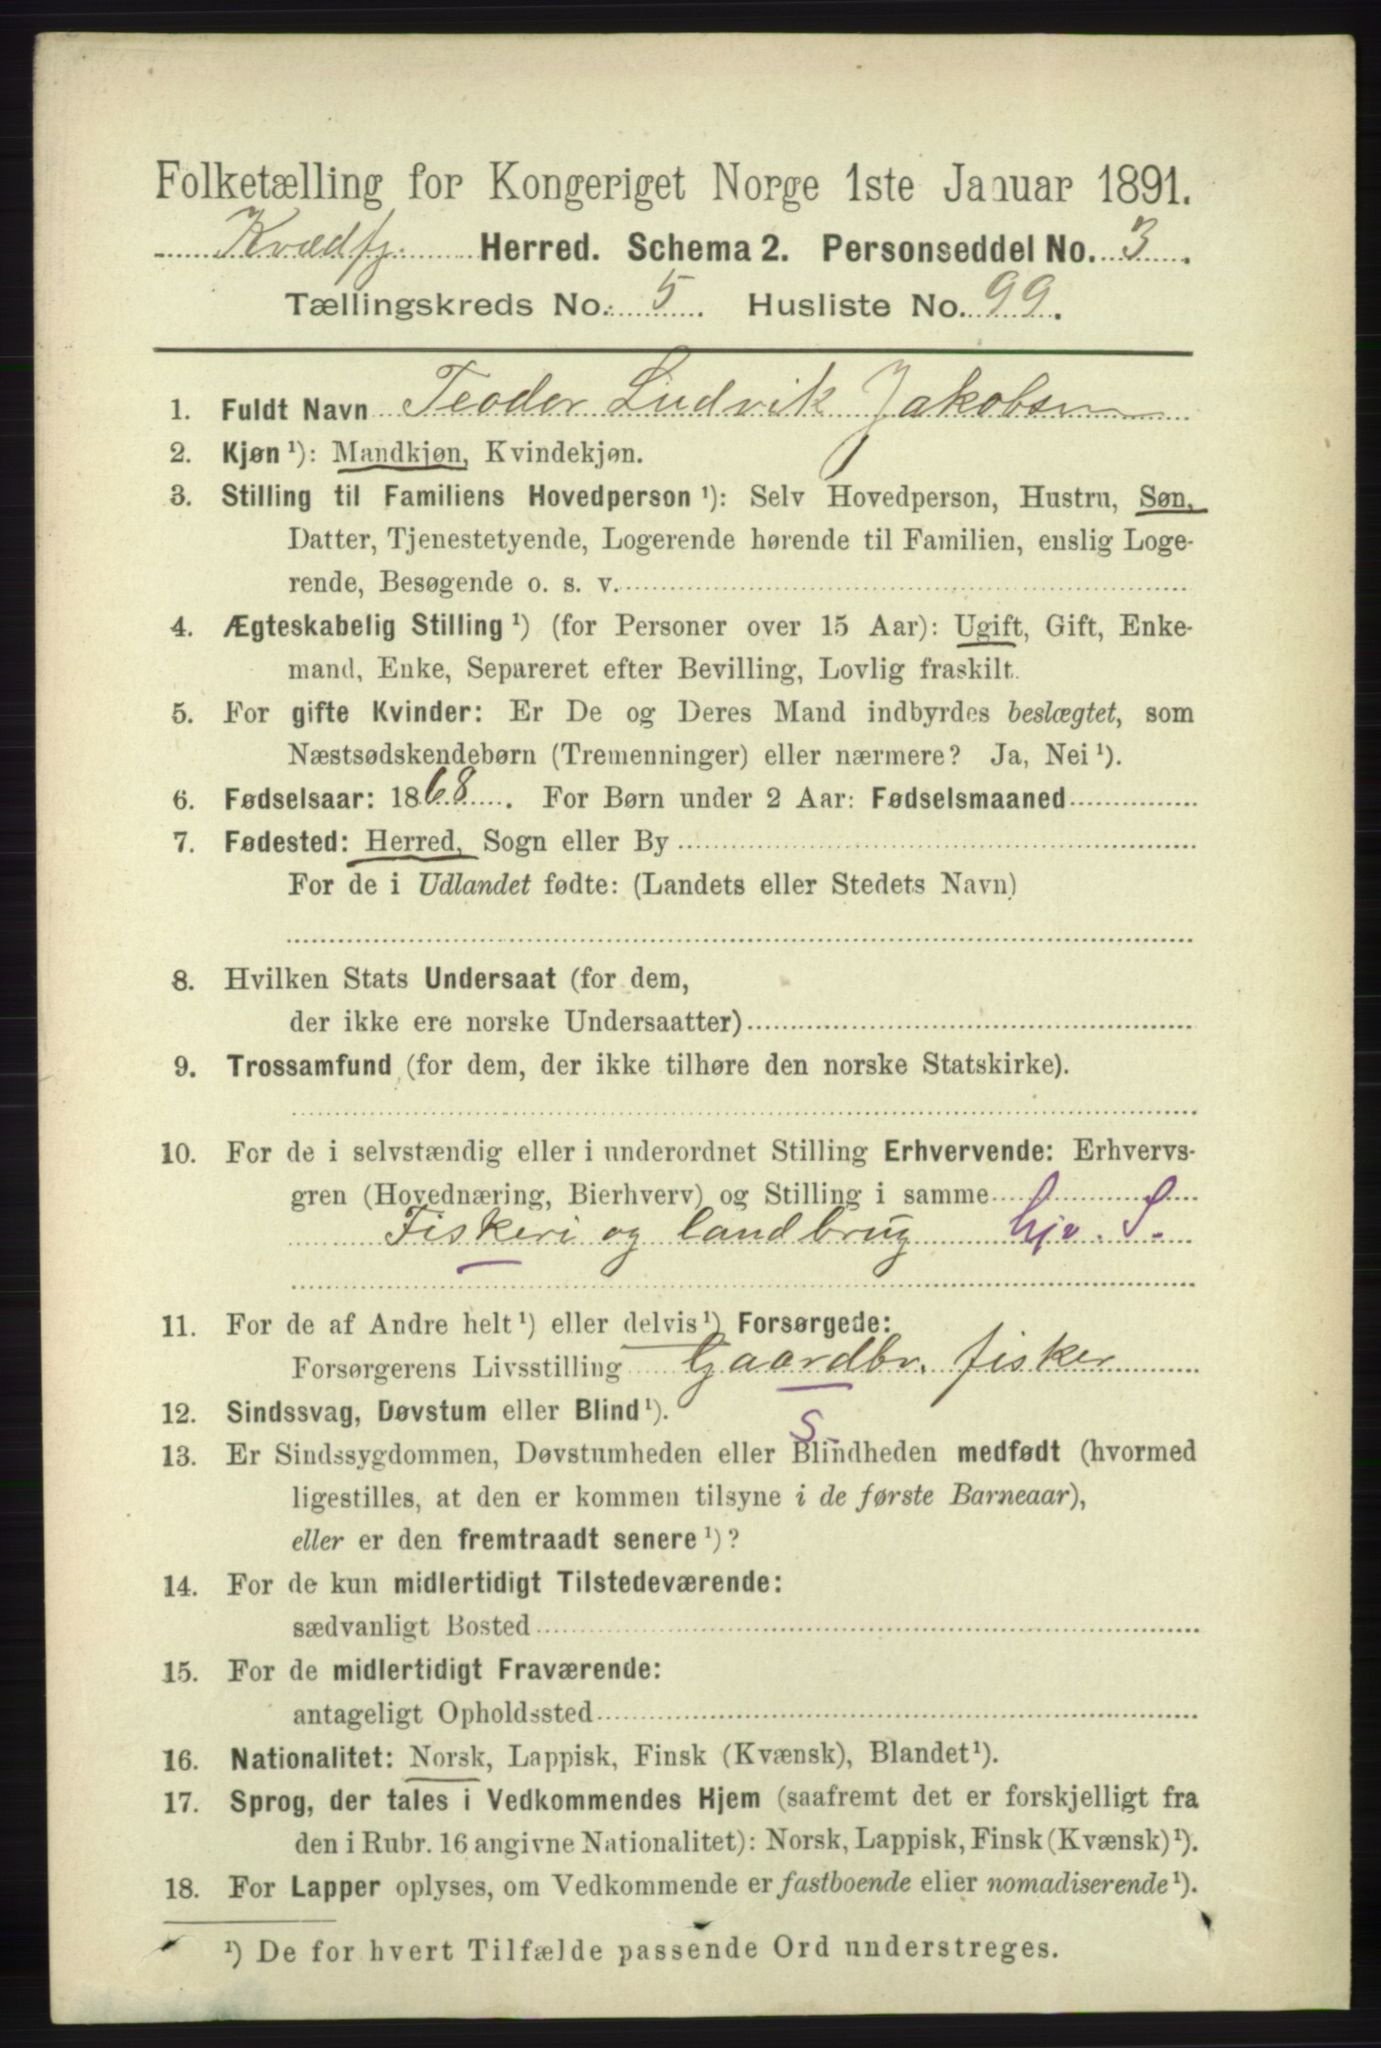 Folketælling for Kongeriget Norge 1ste Januar 1891.
Kvædfj. Herred. Schema 2. Personseddel No. 3.
Tællingskreds No. 5. Husliste No. 99.
1. Fuldt Navn Teodor Ludvik Jakobsen
2. Kjøn ¹): Mandkjøn, Kvindekjøn.
3. Stilling til Familiens Hovedperson ¹): Selv Hovedperson, Hustru, Søn,
Datter, Tjenestetyende, Logerende hørende til Familien, enslig Loge-
rende, Besøgende o. s. v.
4. Ægteskabelig Stilling ¹) (for Personer over 15 Aar): Ugift, Gift, Enke-
mand, Enke, Separeret efter Bevilling, Lovlig fraskilt.
5. For gifte Kvinder: Er De og Deres Mand indbyrdes beslægtet, som
Næstsødskendebørn (Tremenninger) eller nærmere? Ja, Nei ¹).
6. Fødselsaar: 1868. For Børn under 2 Aar: Fødselsmaaned
7. Fødested: Herred, Sogn eller By
For de i Udlandet fødte: (Landets eller Stedets Navn)
8. Hvilken Stats Undersaat (for dem,
der ikke ere norske Undersaatter)
9. Trossamfund (for dem, der ikke tilhøre den norske Statskirke).
10. For de i selvstændig eller i underordnet Stilling Erhvervende: Erhvervs-
gren (Hovednæring, Bierhverv) og Stilling i samme
Fiskeri og landbrug hjv. S.
11. For de af Andre helt ¹) eller delvis ¹) Forsørgede:
Forsørgerens Livsstilling Gaardbr. fisker
12. Sindssvag, Døvstum eller Blind ¹).
S
13. Er Sindssygdommen, Døvstumheden eller Blindheden medfødt (hvormed
ligestilles, at den er kommen tilsyne i de første Barneaar),
eller er den fremtraadt senere ¹)?
14. For de kun midlertidigt Tilstedeværende:
sædvanligt Bosted
15. For de midlertidigt Fraværende:
antageligt Opholdssted
16. Nationalitet: Norsk, Lappisk, Finsk (Kvænsk), Blandet ¹).
17. Sprog, der tales i Vedkommendes Hjem (saafremt det er forskjelligt fra
den i Rubr. 16 angivne Nationalitet): Norsk, Lappisk, Finsk (Kvænsk) ¹).
18. For Lapper oplyses, om Vedkommende er fastboende eller nomadiserende ¹).
¹) De for hvert Tilfælde passende Ord understreges.